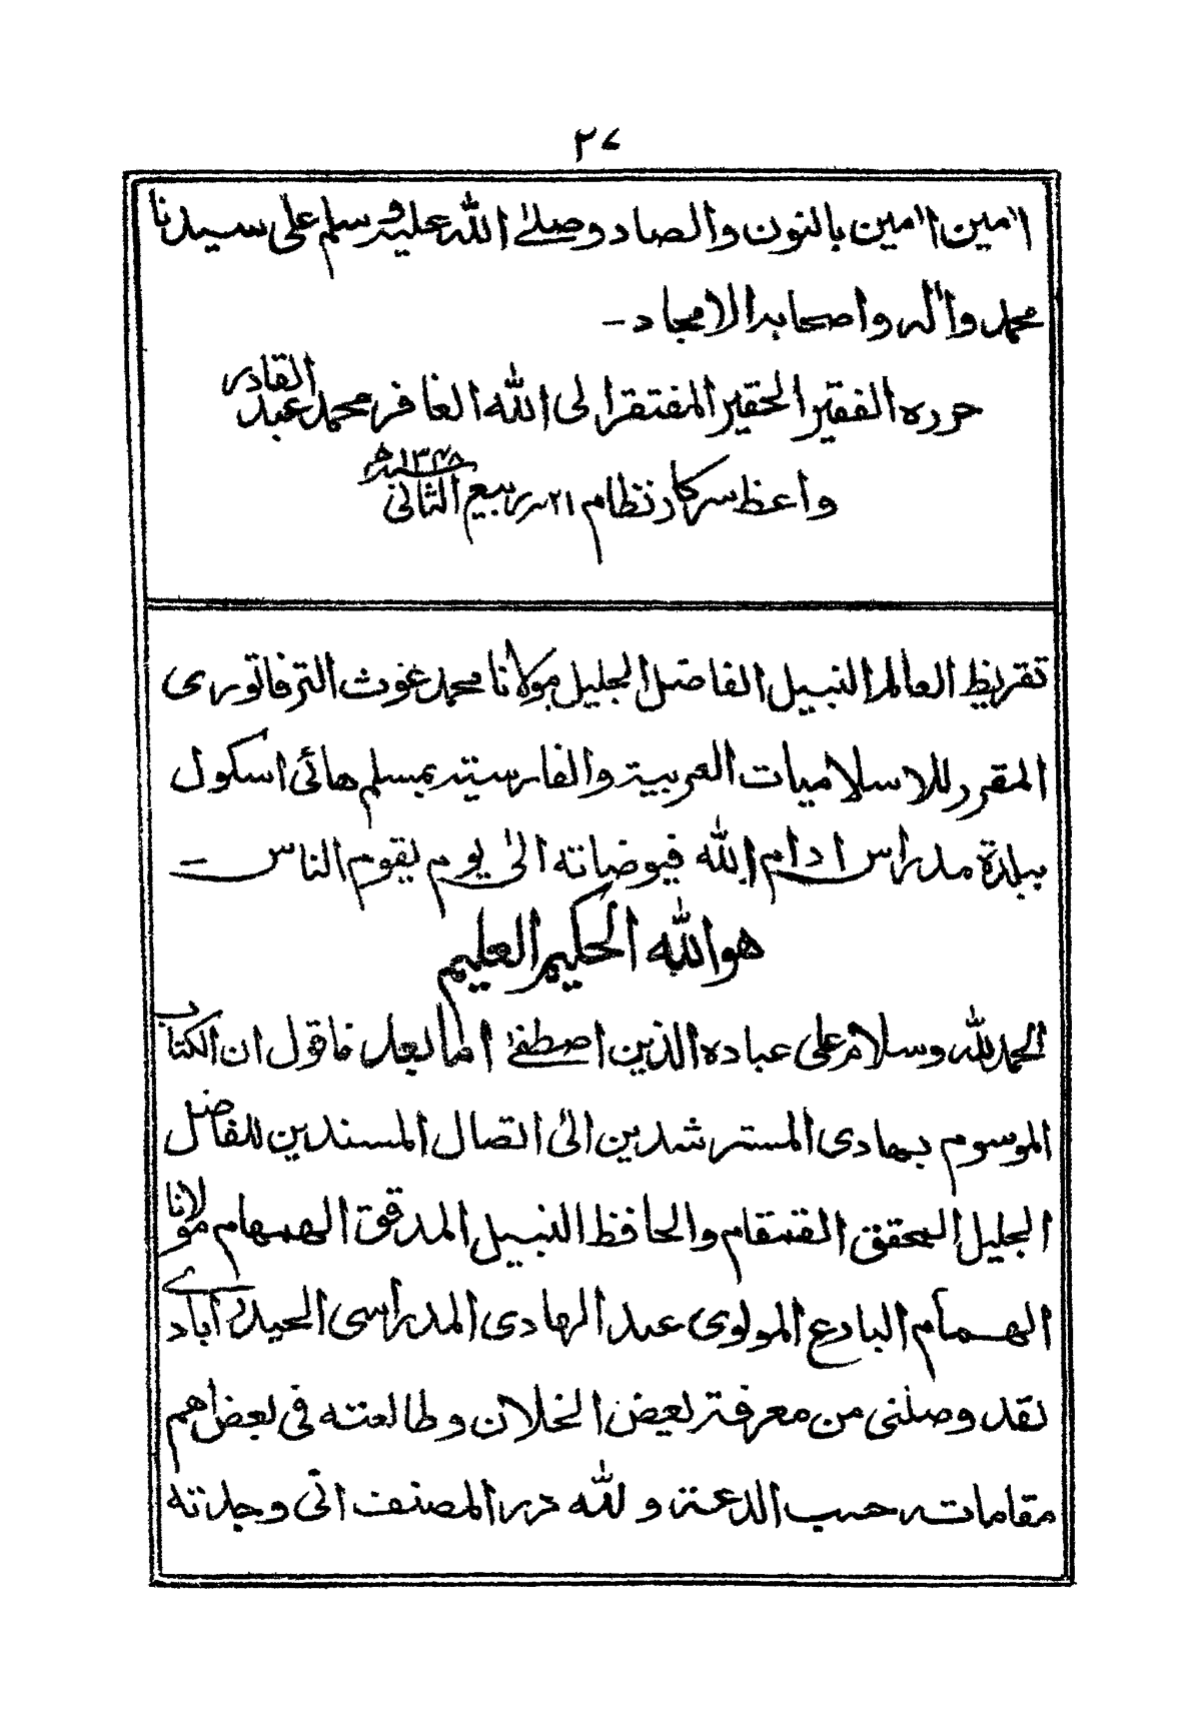 ٢٧
اٰمين اٰمين بالنون والصاد وصلے الله عليه وسلم على سيدنا
محمد واٰله واصحابه الامجاد۔
حرره الفقير الحقير المفتقر الى الله الغافر محمد عبد القادر
واعظ سركار نظام ٢١ ربيع الثانى ١٣٤٨ﻫ
تقريظ العالم النبيل الفاضل الجليل مولانا محمد غوث الترفاتورى
المقرر للاسلاميات العربية والفارسية بمسلم هائى اسكول
ببلدة مدراس ادام الله فيوضاته الىٰ يوم يقوم الناس۔
هو الله الحكيم العليم
الحمد لله وسلام على عباده الذين اصطفےٰ اما بعد فاقول ان الكتاب
الموسوم بهادى المسترشدين الىٰ اتصال المسندين للفاضل
الجليل المحقق القمقام والحافظ النبيل المدقق الهمهام مولانا
الهمام البارع المولوى عبد الهادى المدراسى الحيدرآبادى
لقد وصلنى من معرفة بعض الخلان وطالعته فى بعض اهم
مقاماته حسب الدعة ولله در المصنف انى وجدته